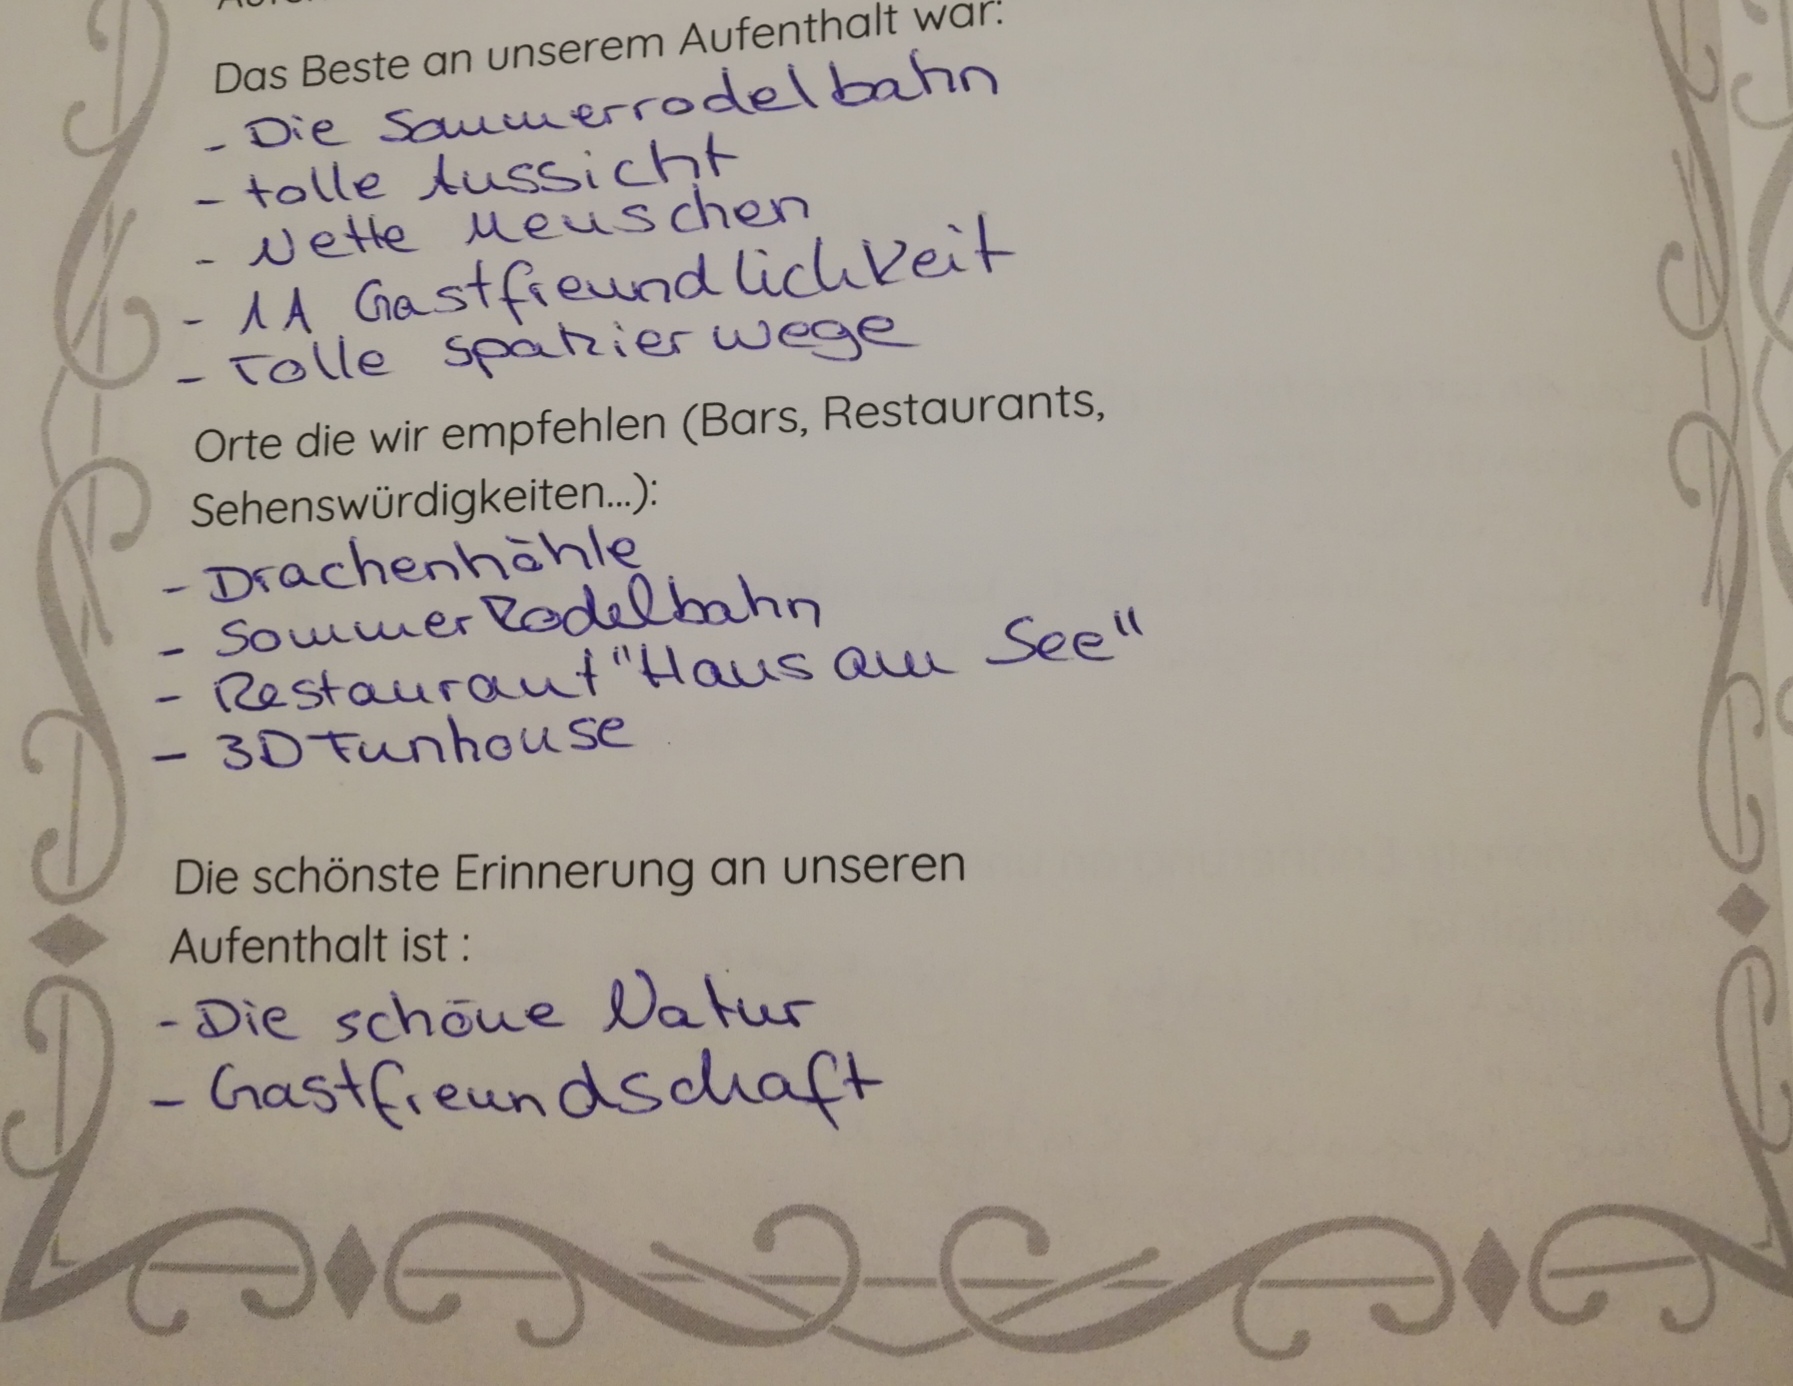 Das Beste an unserem Aufenthalt war:
- Die Sommerrodelbahn
- tolle Aussicht
- Nette Menschen
- 1A Gastfreundlichkeit
- Tolle Spatzierwege
Orte die wir empfehlen (Bars, Restaurants,
Sehenswürdigkeiten...):
- Drachenhöhle
- Sommer Rodelbahn
- Restaurant "Haus am See"
- 3D Funhouse
Die schönste Erinnerung an unseren
Aufenthalt ist :
- Die schöne Natur
- Gastfreundschaft